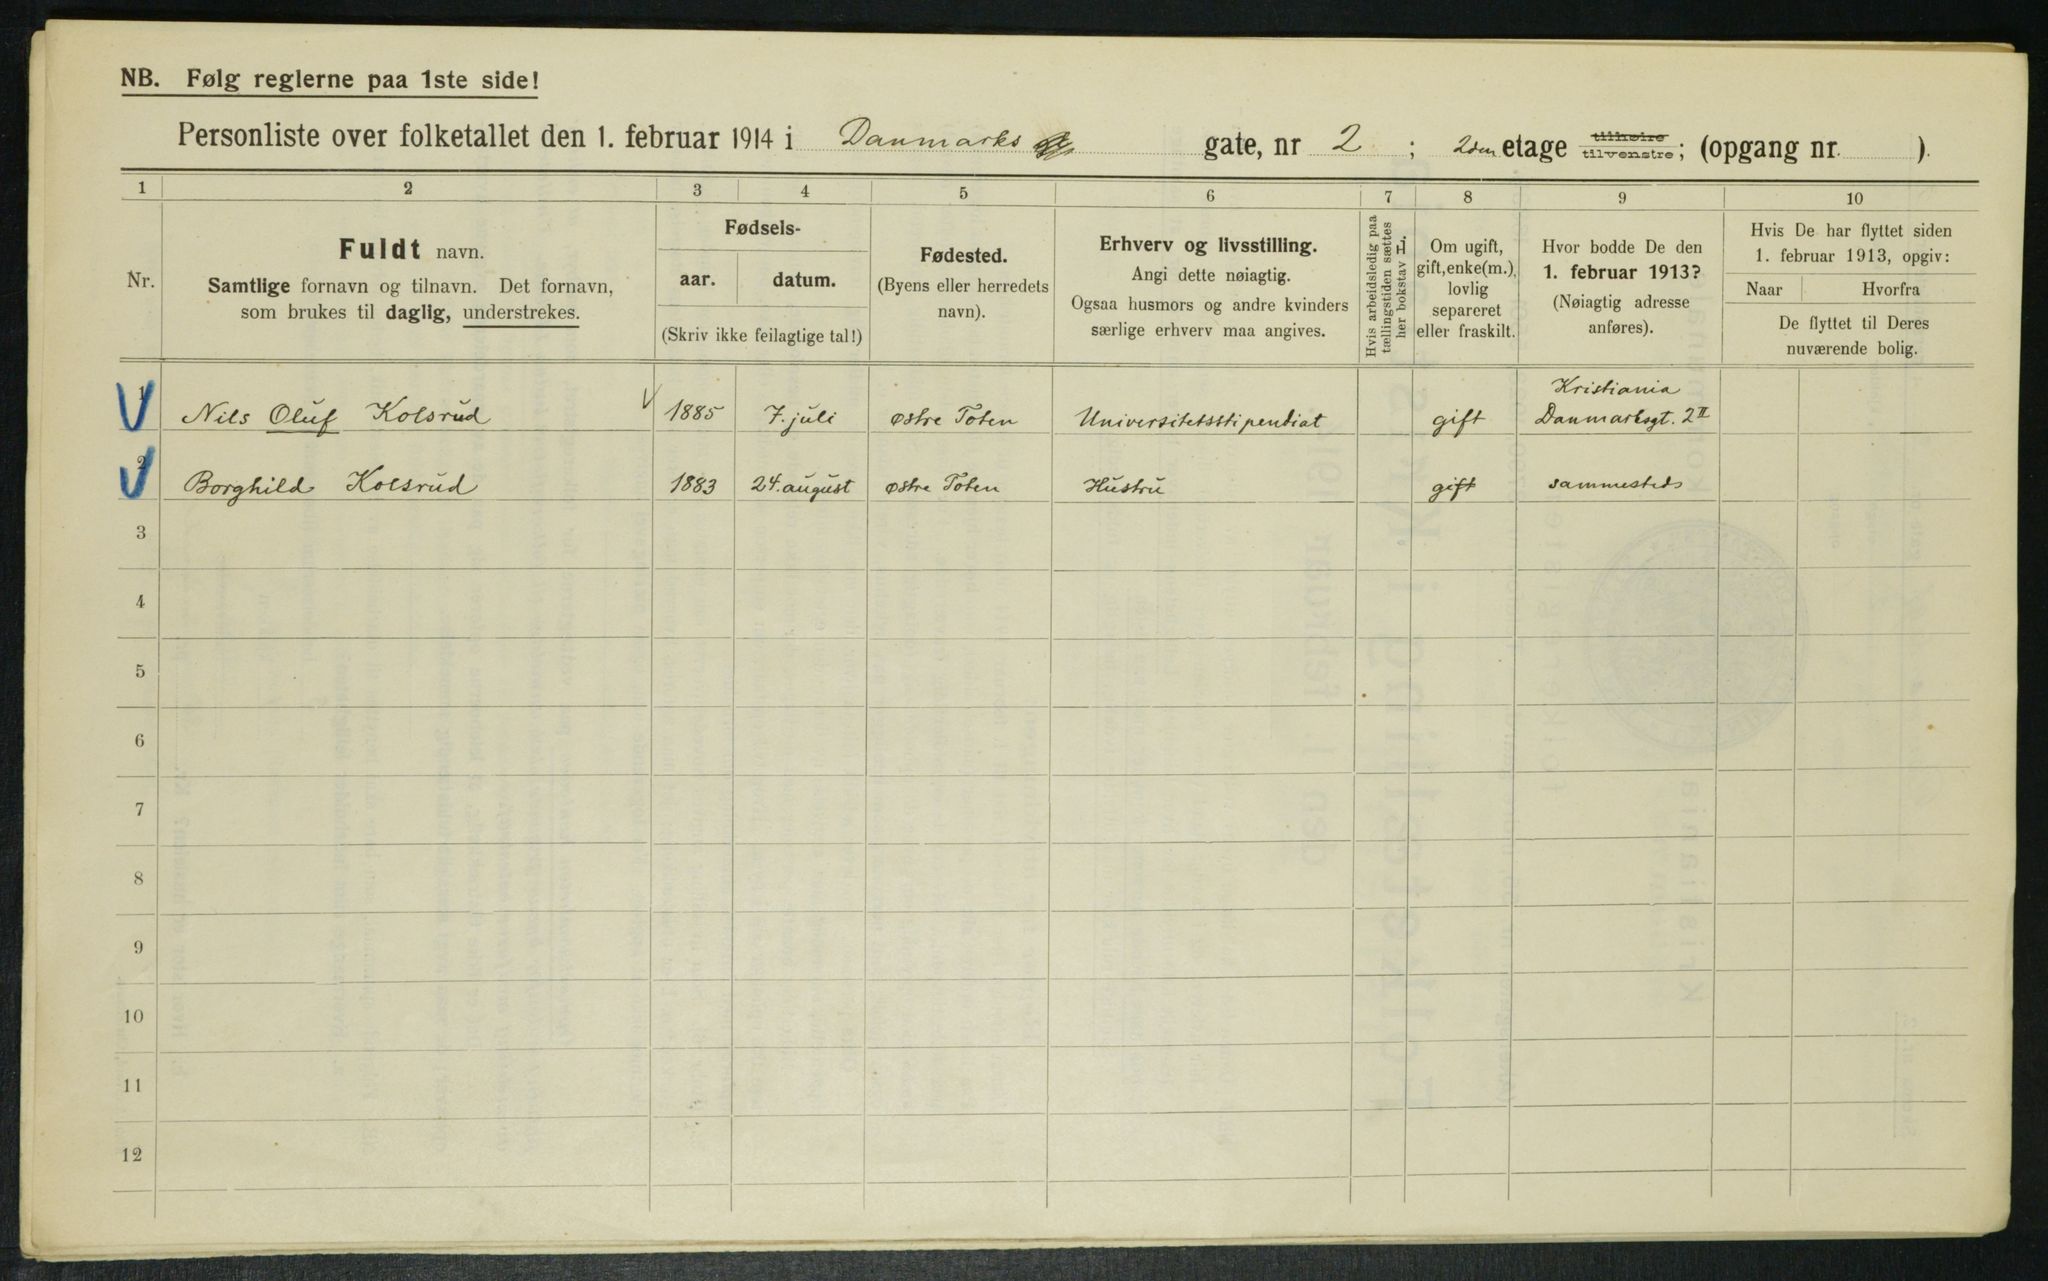 NB. Følg reglerne paa 1ste side!
Personliste over folketallet den 1. februar 1914 i Danmarks gate, nr 2 ; 2den etage tilhøire tilvenstre; (opgang nr. ).
1 2 3 4 5 6 7 8 9 10
Nr.
Fuldt navn.
Samtlige fornavn og tilnavn. Det fornavn,
som brukes til daglig, understrekes.
Fødsels-
aar. datum.
(Skriv ikke feilagtige tal!)
Fødested.
(Byens eller herredets
navn).
Erhverv og livsstilling.
Angi dette nøiagtig.
Ogsaa husmors og andre kvinders
særlige erhverv maa angives.
Hvis arbeidsledig paa
tællingstiden sættes
her bokstav L.
Om ugift,
gift, enke(m.),
lovlig
separeret
eller fraskilt.
Hvor bodde De den
1. februar 1913?
(Nøiagtig adresse
anføres).
Hvis De har flyttet siden
1. februar 1913, opgiv:
Naar Hvorfra
De flyttet til Deres
nuværende bolig.
1 Nils Oluf Kolsrud 1885 7. juli østre Toten Universitetsstipendiat gift Kristiania
Danmarksgt. 2 II
2 Borghild Kolsrud 1883 24. august østre Toten Hustru gift sammesteds
3
4
5
6
7
8
9
10
11
12